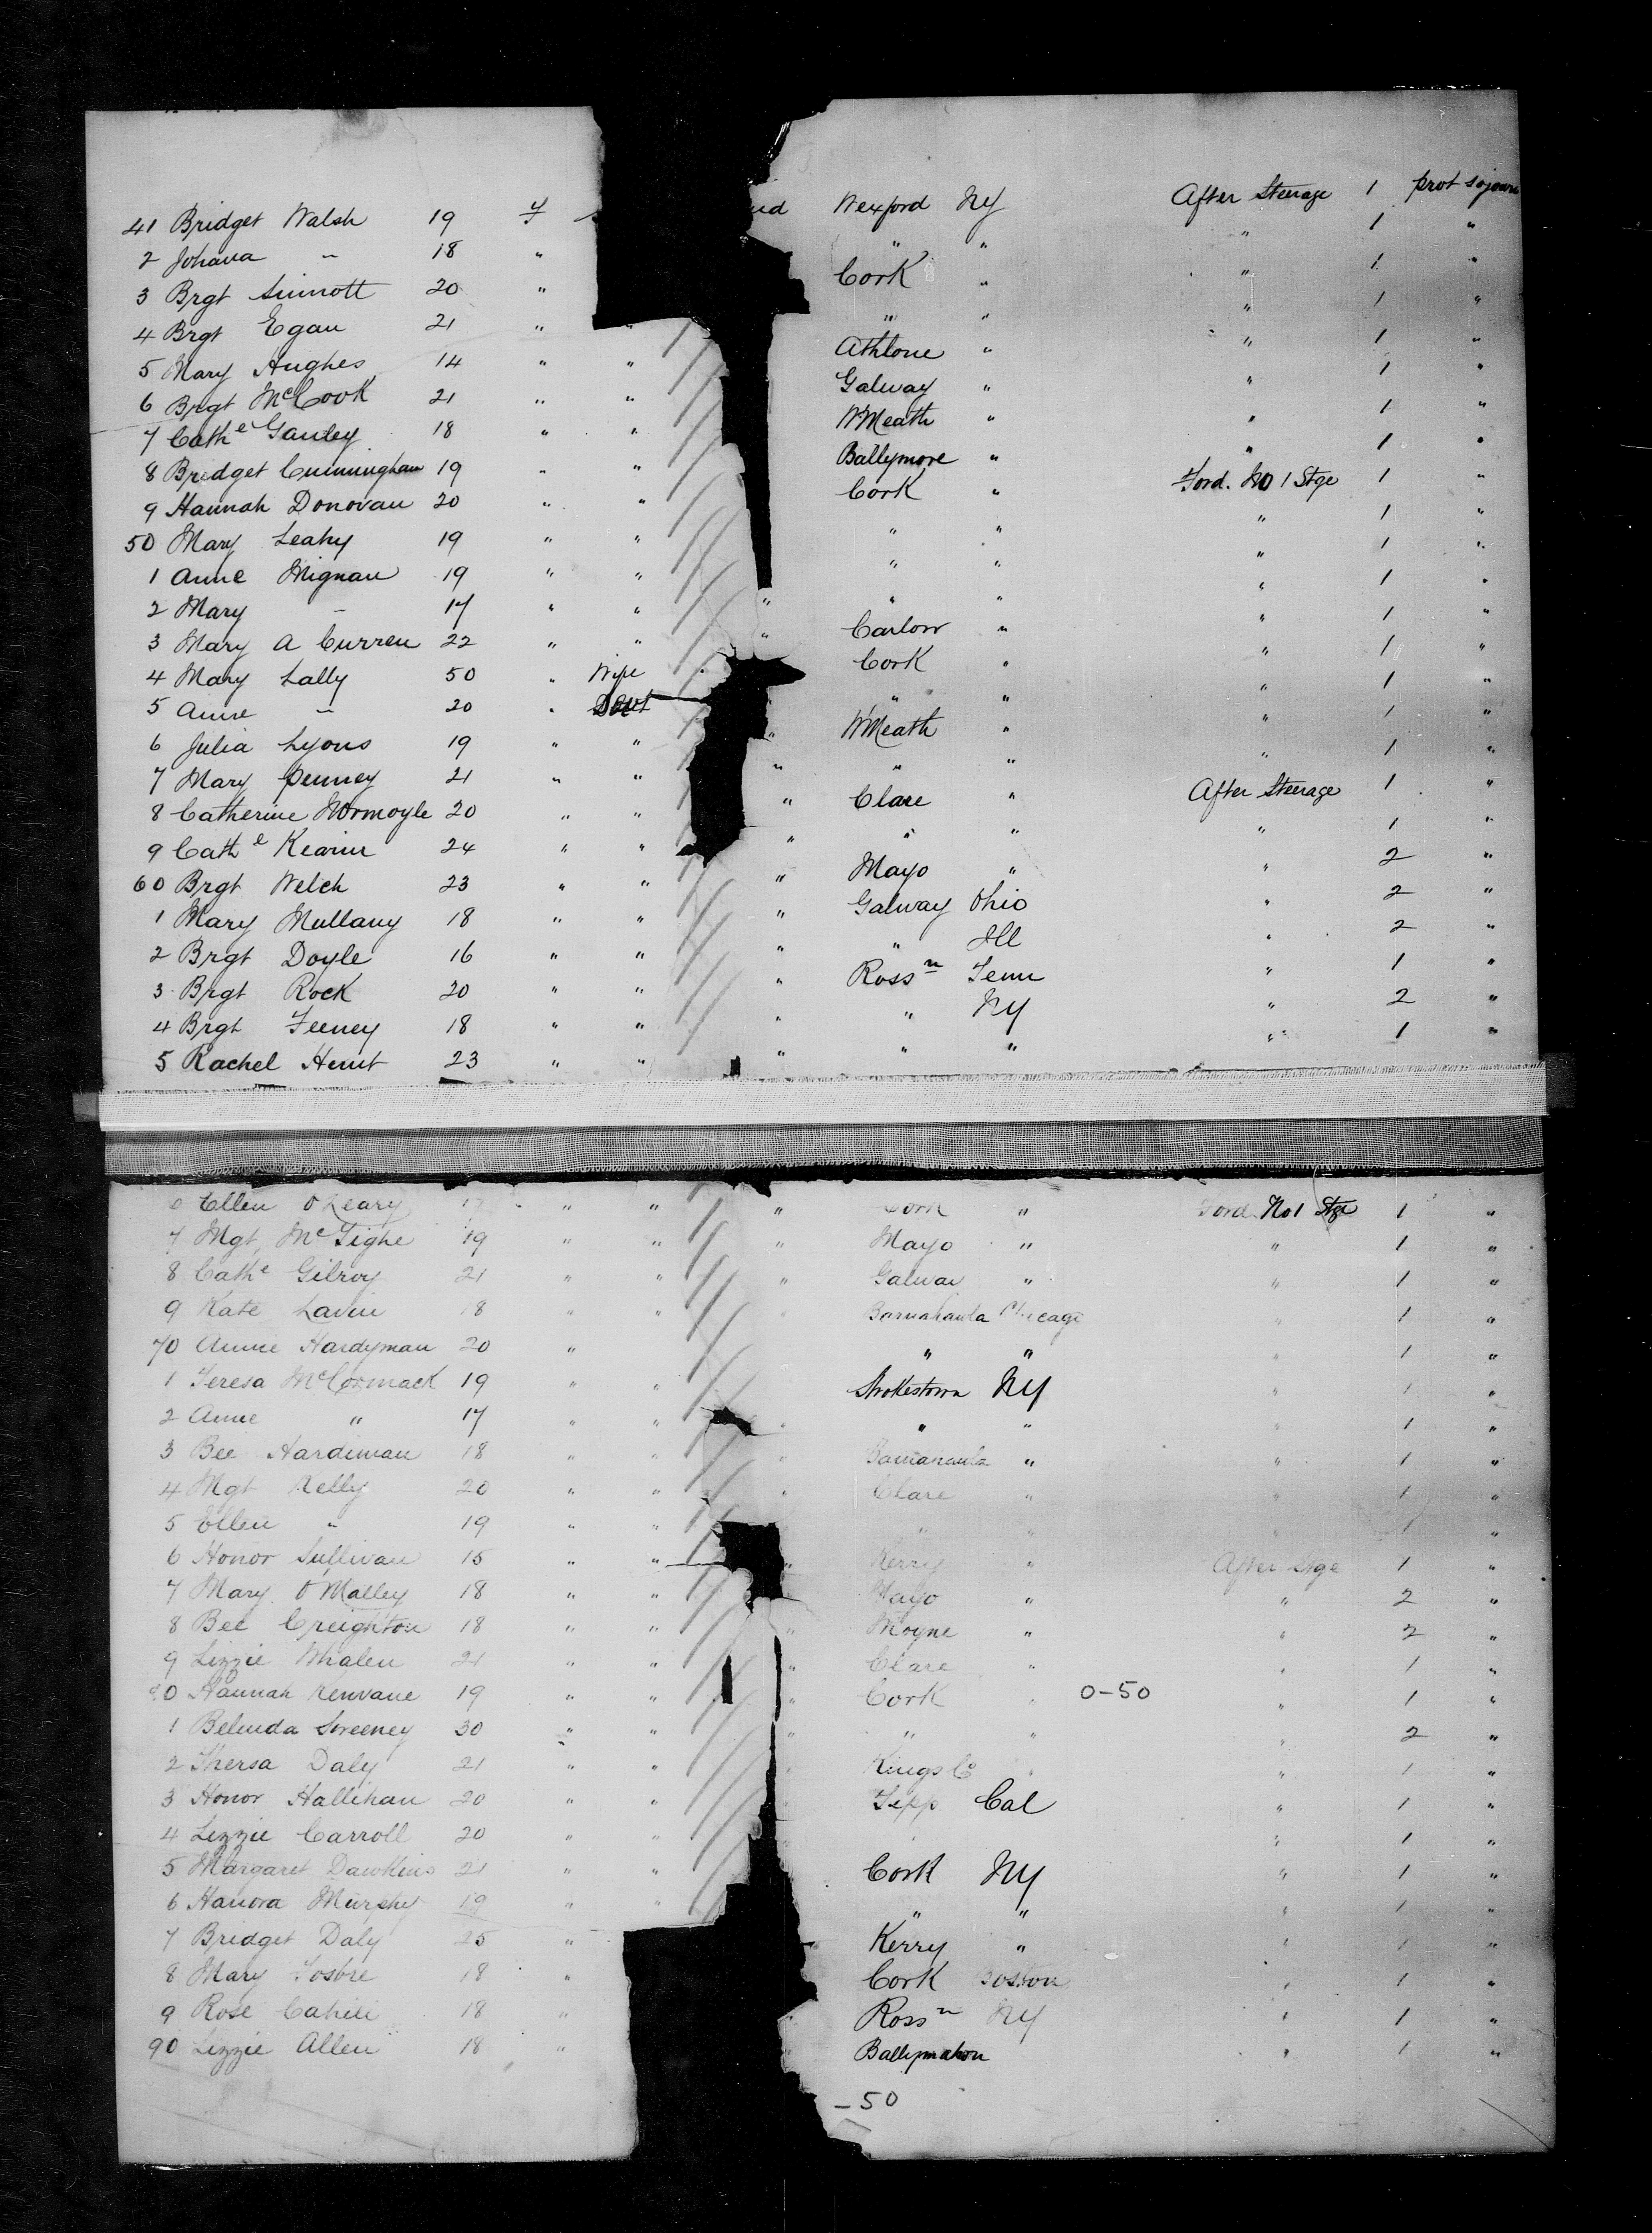 41 Bridget Walsh 19 F Wexford NY After Steerage 1 prot sojourn
2 Johana " 18 " " " " 1 "
3 Brgt Sinnott 20 " Cork " " 1 "
4 Brgt Egan 21 " " " " " 1 "
5 Mary Hughes 14 " " Athlone " " 1 "
6 Brgt McCook 21 " " Galway " " 1 "
7 Cathe Ganley 18 " " W'Meath " " 1 "
8 Bridget Cunningham 19 " " Ballymore " " 1 "
9 Hannah Donovan 20 " " Cork " Ford. No 1 Stge 1 "
50 Mary Leahy 19 " " " " " 1 "
1 Anne Mignau 19 " " " " " 1 "
2 Mary " 17 " " " " " " 1 "
3 Mary A Curren 22 " " " Carlow " " 1 "
4 Mary Lally 50 " Wife Cork " " 1 "
5 Anne " 20 " " " " 1 "
6 Julia Lyons 19 " " " W'Meath " " 1 "
7 Mary Penney 21 " " " " " " 1 "
8 Catherine Normoyle 20 " " " Clare " After Steerage 1 "
9 Cathe Kearin 24 " " " " " " 1 "
60 Brgt Welch 23 " " " Mayo " " 2 "
1 Mary Mullany 18 " " " Galway Ohio " 2 "
2 Brgt Doyle 16 " " " " Ill " 2 "
3 Brgt Rock 20 " " " Rossn Tenn " 1 "
4 Brgt Feeney 18 " " " " NY " 2 "
5 Rachel Hunt 23 " " " " " " 1 "
Ellen O'Leary " " " Cork " Ford. No 1 Stge 1 "
7 Mgt McTighe 19 " " " Mayo " " 1 "
8 Cathe Gilroy 21 " " " Galway " " 1 "
9 Kate Lavin 18 " " Chicago " 1 "
70 Annie Hardyman 20 " " " " 1 "
1 Teresa McCormack 19 " " Strokestown NY " 1 "
2 Anne " 17 " " " " " " 1 "
3 Bee Hardiman 18 " " " " " 1 "
4 Mgt Kelly 20 " " " Clare " " 1 "
5 Ellen " 19 " " " " " 1 "
6 Honor Sullivan 15 " " " Kerry " After Stge 1 "
7 Mary O'Malley 18 " " Mayo " " 2 "
8 Bee Creighton 18 " " " Moyne " " 2 "
9 Lizzie Whalen 21 " " " Clare " " 1 "
80 Hannah Renvane 19 " " " Cork " 0-50 " 1 "
1 Belinda Sweeney 30 " " " " " " 2 "
2 Thersa Daly 21 " " " Kings Co " " 1 "
3 Honor Hallihan 20 " " Tipp Cal " 1 "
4 Lizzie Carroll 20 " " " " 1 "
5 Margaret Dawkins 21 " " Cork NY " 1 "
6 Hanora Murphy 19 " " " " " 1 "
7 Bridget Daly 25 " Kerry " " 1 "
8 Mary 18 " Cork Boston " 1 "
9 Rose Cahill 18 " Rossn NY " 1 "
90 Lizzie Allen 18 " Ballymahon " 1 "
-50